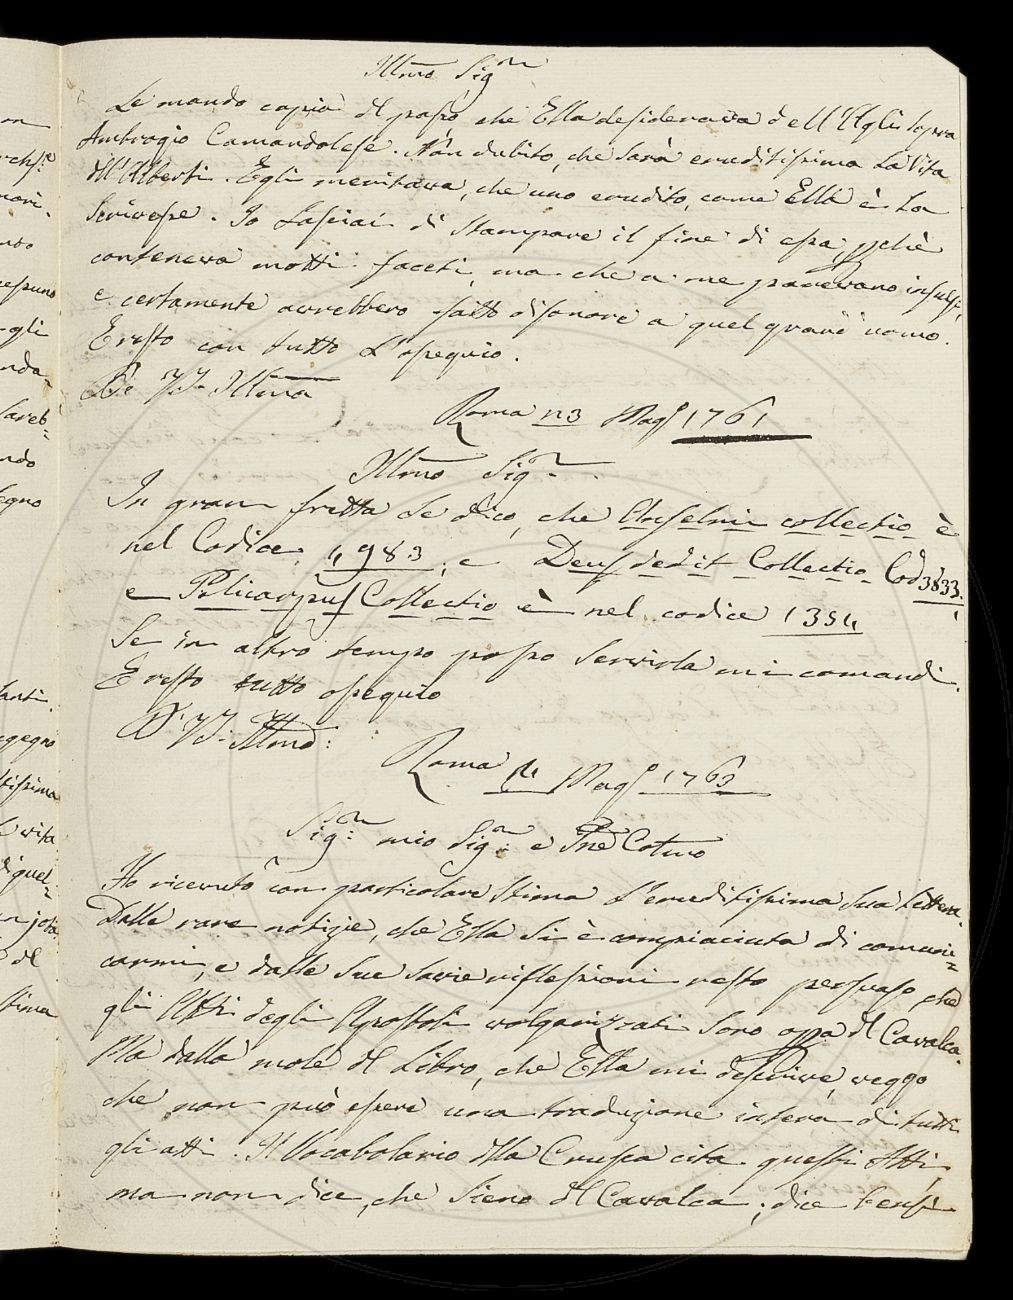 Illmo Sigre
Le mando copia del passo che Ella desiderava dell'Agli sopra
Ambrogio Camandolese. Non dubito, che sarà eruditissima la Vita
dll'Alberti. Egli meritava, che uno erudito, come Ella è la
scrivesse. Io lasciai di stampare il fine di essa, pchè
conteneva motti faceti, ma che a me parevano insulsi,
e certamente avrebbero fatto disonore a quel grand'uomo.
E resto con tutto l'ossequio.
De V. S. Illma
Roma 23 Magg. 1761
Illmo Sigre
In gran fretta Le dico, che Anselmi collectio è
nel Codice 4983, e Deusdedit Collectio Cod 3833.
e Policarpus Collectio è nel codice 1354
Se in altro tempo posso servirla mi comandi.
E resto tutto ossequio
D V. S. Illma:
Roma Magg. 1763
Sigre: mio Sigre: e Pne Colmo
Ho ricevuto con particolare stima l'eruditissima sua lettera
Dalle rare notizie, che Ella si è compiaciuta di comuni=
carmi, e dalle sue savie riflessioni resto persuaso che
gli Atti degli Apostoli volgarizzati sono oppa dl Cavalca.
Ma dalla mole dl Libro, che Ella mi descrive, veggo
che non può essere una traduzione intera di tutti
gli atti. Il Vocabolario dlla Crusca cita questi Atti,
ma non dice, che sieno dl Cavalca; dice bensì